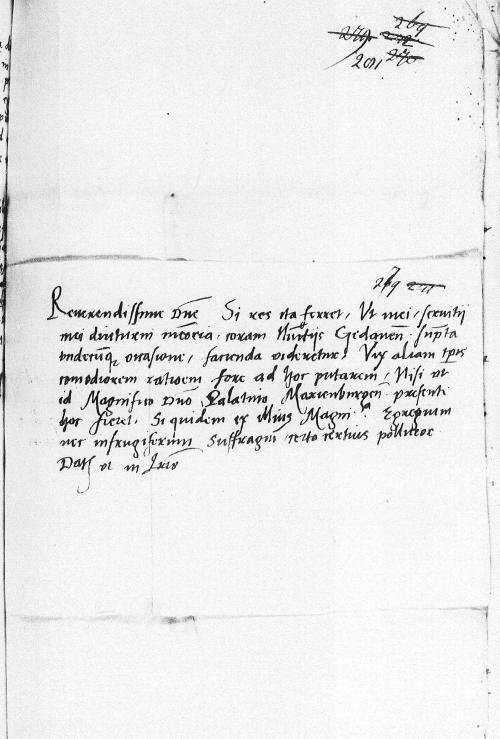 269
279 272
201 270
279 271
Reverendissime Dne Si res ita ferret, Ut mei, servitij
mei diuturni memoria, coram Nuntijs Gedanen sumpta
undecumq occasione, facienda videretur, Vix aliam tpis
comodiorem rationem fore ad hoc putarem, Nisi ut
id Magnifico Dno Palatino Marienburgen presenti
hoc fieret, Si quidem ex illius Magn Egregium
nec infrugiferum Suffragium certo certius polliceor
Dat ut in